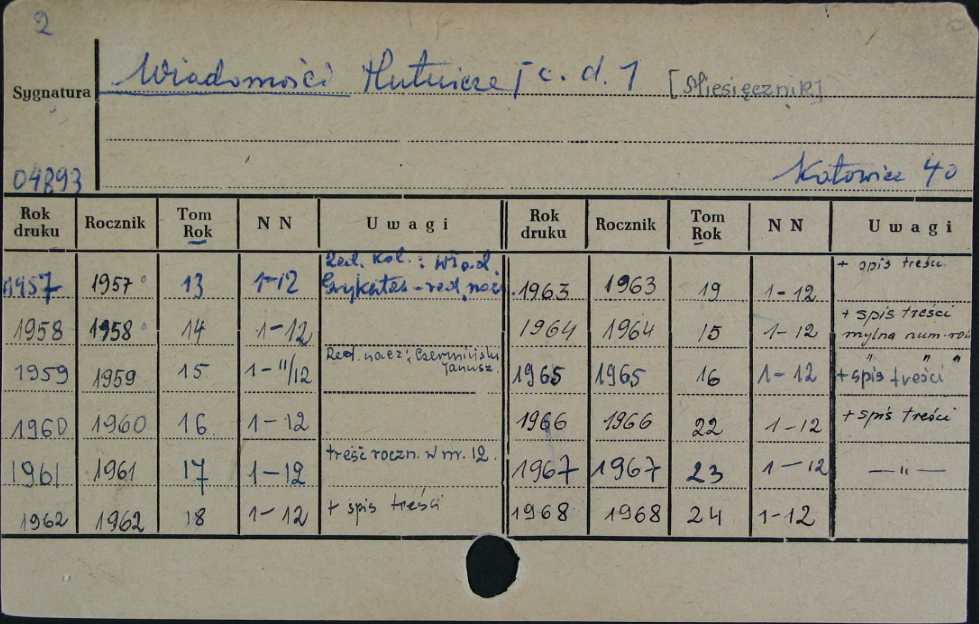 2
Wiadomości Hutnicze [c. d. 1 [Miesięcznik]
Sygnatura
04893 Katowice 40
Rok druku Rocznik Tom Rok N N Uwagi Rok druku Rocznik Tom Rok N N Uwagi
1957 1957 13 1-12 Red. Kol.: 1963 1963 19 1-12 + spis treści
1958 1958 14 1-12 1964 1964 15 1-12 + spis treści mylna num.
1959 1959 15 1-11/12 Red. nacz: Czermiński Janusz. 1965 1965 16 1-12 " " " + spis treści
1960 1960 16 1-12 1966 1966 22 1-12 + spis treści
1961 1961 17 1-12 treść roczn. w nr. 12. 1967 1967 23 1-12 —"—
1962 1962 18 1-12 + spis treści 1968 1968 24 1-12